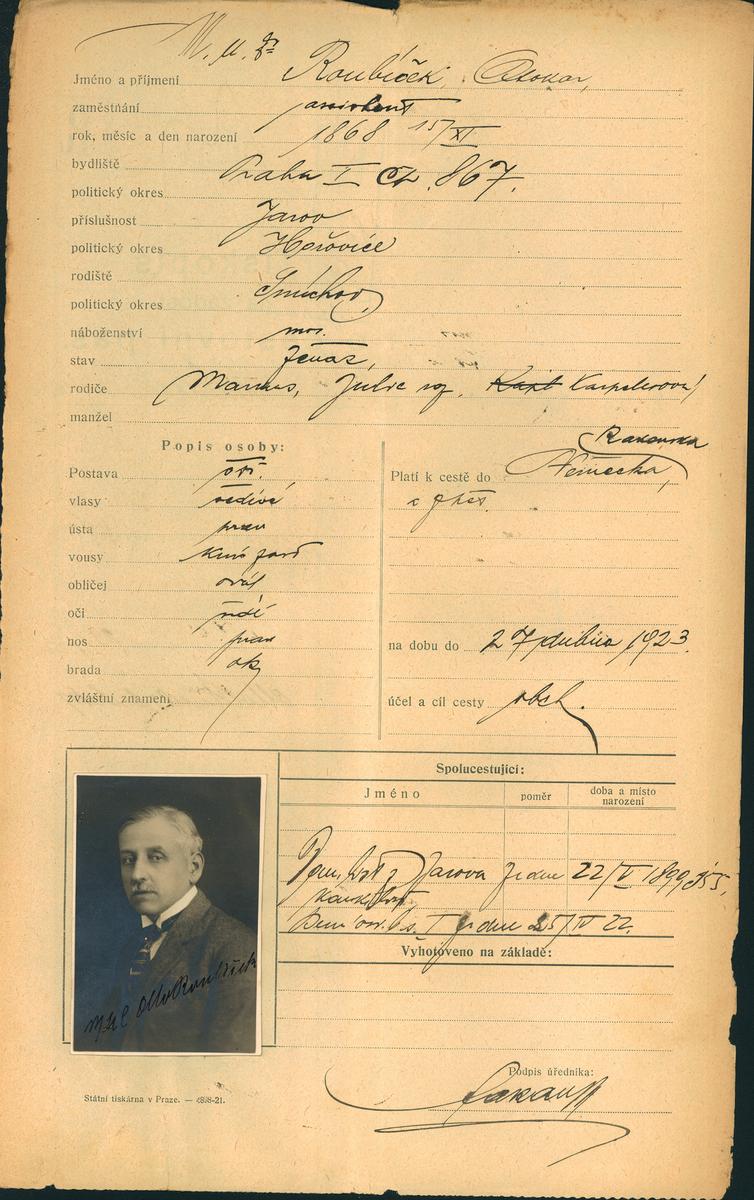 M. U. Dr
Jméno a příjmení Roubíček, Otokar,
zaměstnání assistent
rok, měsíc a den narození 1868 15/XI
bydliště Praha I čp. 867.
politický okres
příslušnost Jarov
politický okres Hořovice
rodiště
politický okres Smíchov
náboženství mos.
stav ženat,
rodiče Markus, Julie roz. Karpelesová
manžel
Popis osoby:
Postava stř.
vlasy šedivé
ústa prav
vousy knír
obličej ovál
oči šedé
nos prav
brada ok
zvláštní znamení
Rakouska
Platí k cestě do Německa,
a zpět.
na dobu do 27 dubna 1923.
účel a cíl cesty obch.
Spolucestující:
Jméno poměr doba a místo narození
Dom. list z Jarova ze dne 22/V 1899,
ze dne 25/IV 22.
Vyhotoveno na základě:
Otto Roubíček
Podpis úředníka:
Státní tiskárna v Praze. — 4898-21.